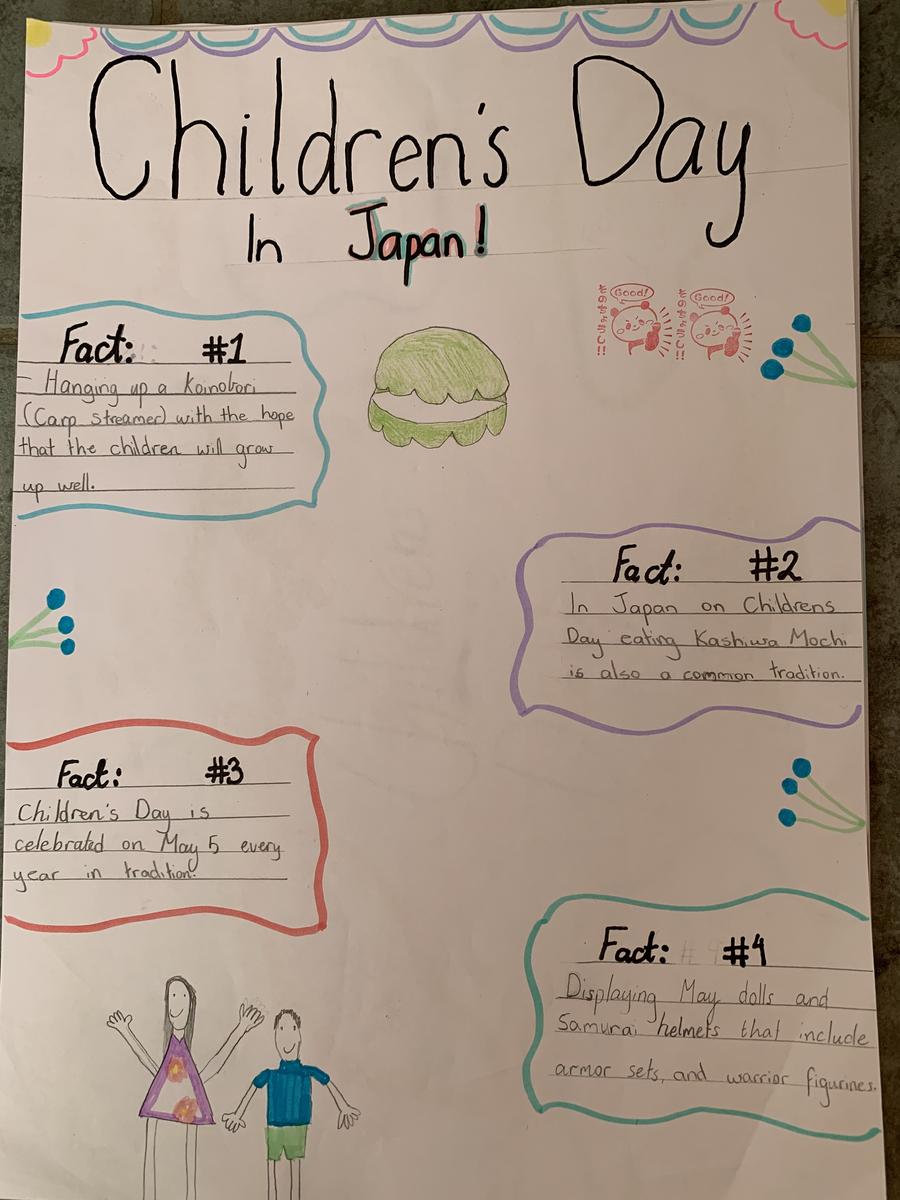 Children's Day
In Japan!
Good!
Good!
Fact: #1
- Hanging up a Koinobori
(Carp Streamer) with the hope
that the children will grow
up well.
Fact: #2
In Japan on Childrens
Day eating Kashiwa Mochi
is also a common tradition.
Fact: #3
Children's Day is
celebrated on May 5 every
year in tradition.
Fact: #4
Displaying May dolls and
Samurai helmets that include
armor sets, and warrior figurines.